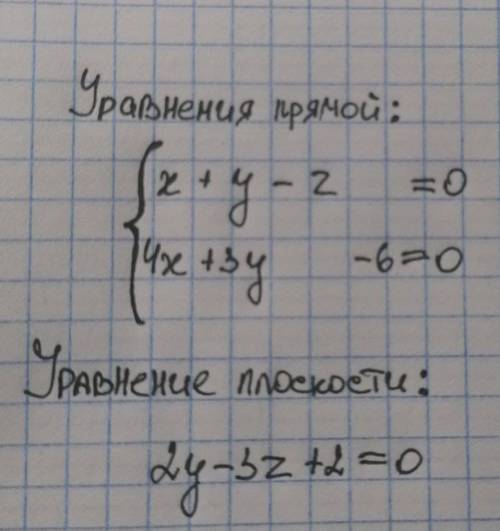 Уравнения прямой:
x + y - z = 0
4x + 3y - 6 = 0
Уравнение плоскости:
2y - 3z + 2 = 0